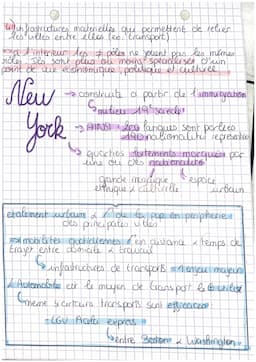 infrastructures matérielles qui permettent de relier
les villes entre elles (ex: transport)
à l'intérieur les ≠ pôles ne jouent pas les mêmes
rôles. Ils sont plus ou moins spécialisés d'un
point de vue économique, politique et culturel.
New York
→ construite à partir de l'immigration
milieu 19e siècle
→ langues sont parlées
nationalités
→ quartiers fortements marqués par
une ou des nationalités
grande mixité
ethnique & culturelle
espace urbain
étalement urbain & de la pop en périphérie
des principales villes
⇒ mobilités quotidiennes en distance & temps de
trajet entre domicile & travail
infrastructures de transports = enjeu majeur
L'Automobile est le moyen de transport le + utilisé
même si certains transports sont efficaces:
- LGV Acela express
entre Boston & Washington